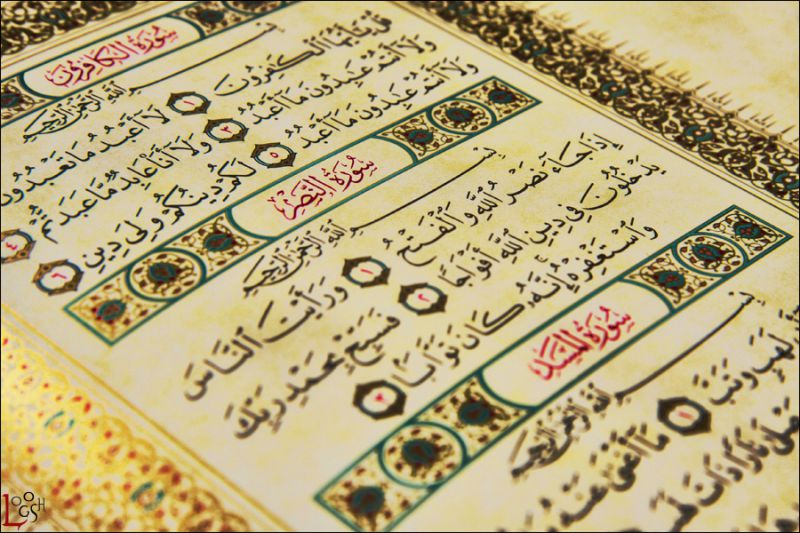 سُورَةُ الكَافِرُونَ
بِسْمِ ٱللَّهِ ٱلرَّحْمَٰنِ ٱلرَّحِيمِ
قُلْ يَٰٓأَيُّهَا ٱلْكَٰفِرُونَ ١ لَآ أَعْبُدُ مَا تَعْبُدُونَ
وَلَآ أَنتُمْ عَٰبِدُونَ مَآ أَعْبُدُ ٣ وَلَآ أَنَا۠ عَابِدٌ مَّا عَبَدتُّمْ ٤
وَلَآ أَنتُمْ عَٰبِدُونَ مَآ أَعْبُدُ ٥ لَكُمْ دِينُكُمْ وَلِىَ دِينِ ٦
سُورَةُ النَّصْرِ
بِسْمِ ٱللَّهِ ٱلرَّحْمَٰنِ ٱلرَّحِيمِ
إِذَا جَآءَ نَصْرُ ٱللَّهِ وَٱلْفَتْحُ ١ وَرَأَيْتَ ٱلنَّاسَ
يَدْخُلُونَ فِى دِينِ ٱللَّهِ أَفْوَاجًا ٢ فَسَبِّحْ بِحَمْدِ رَبِّكَ
وَٱسْتَغْفِرْهُ إِنَّهُۥ كَانَ تَوَّابًۢا ٣
سُورَةُ المَسَدِ
بِسْمِ ٱللَّهِ ٱلرَّحْمَٰنِ ٱلرَّحِيمِ
لَهَبٍ وَتَبَّ ١ مَآ أَغْنَىٰ عَنْهُ
نَارًا ذَاتَ